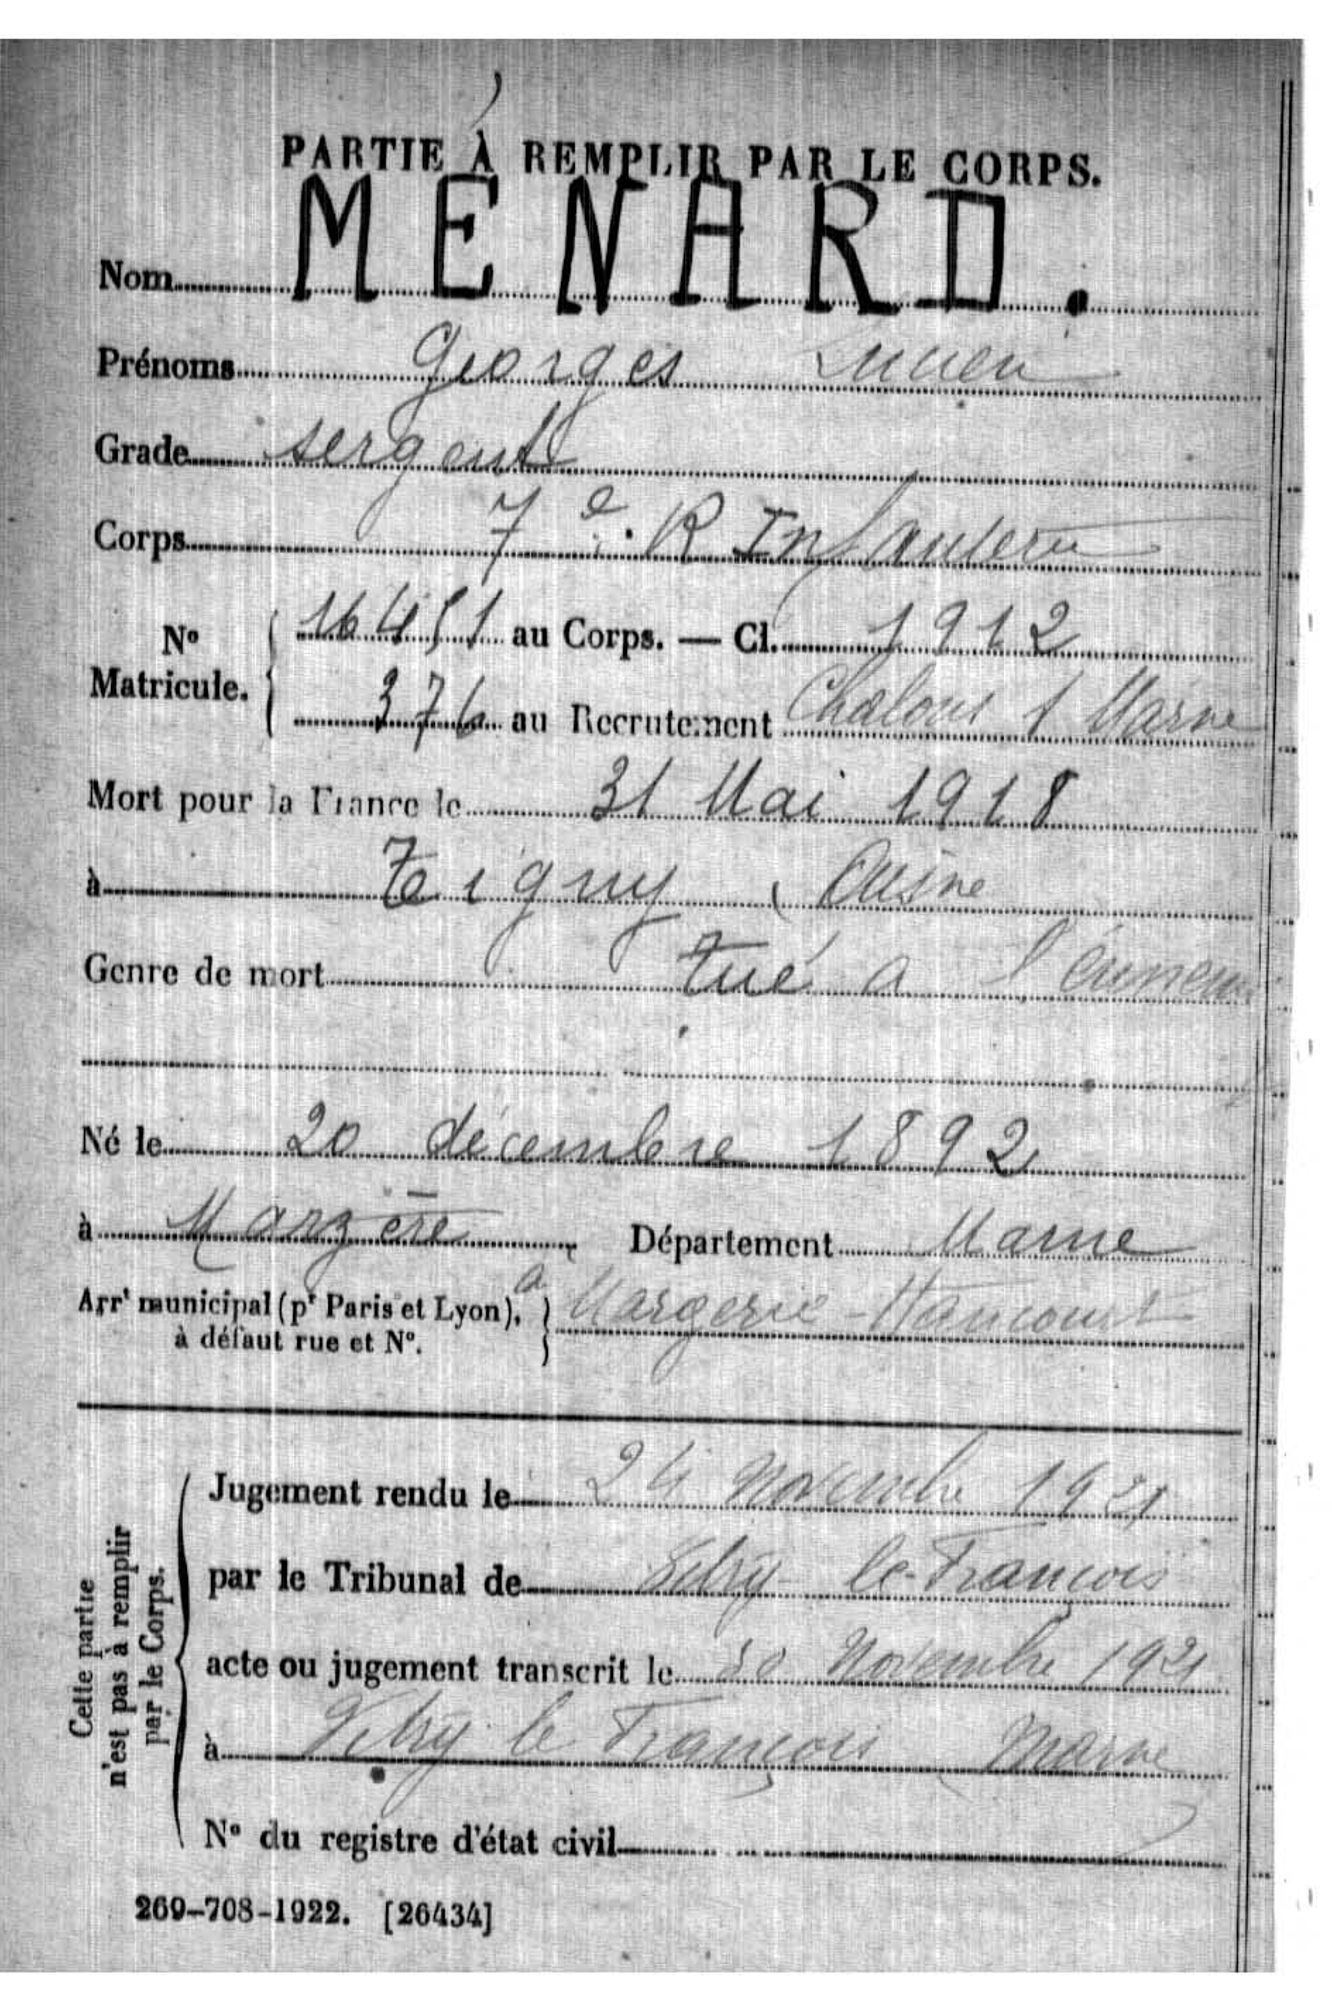 PARTIE À REMPLIR PAR LE CORPS.
Nom MENARD.
Prénoms Georges Lucien
Grade sergent
Corps 7e. R Infanterie
No Matricule. 16451 au Corps. — Cl. 1912
376 au Recrutement Chalons s Marne
Mort pour la France le 31 Mai 1918
à Tigny, Aisne
Genre de mort tué a l'ennemi
Né le 20 décembre 1892
à Département Marne
Arrt municipal (pr Paris et Lyon), à défaut rue et No. a Margerie-Hancourt
Cette partie n'est pas à remplir par le Corps.
Jugement rendu le 24 Novembre 1921
par le Tribunal de Vitry-le-François
acte ou jugement transcrit le 30 Novembre 1921
à Vitry le François (Marne)
No du registre d'état civil
269-708-1922. [26434]